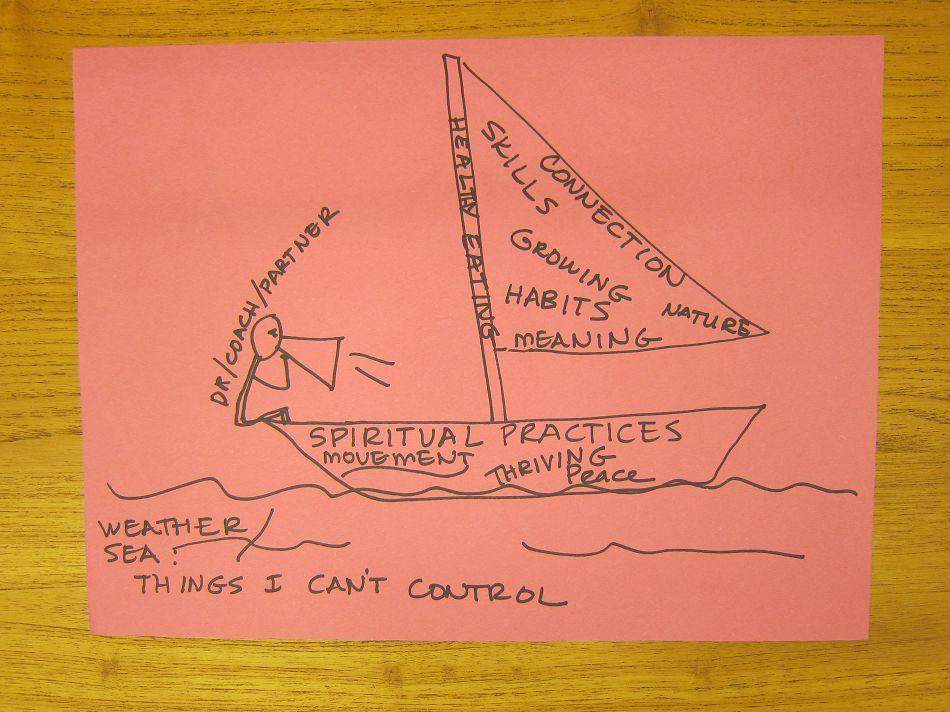 HEALTHY EATING
SKILLS
CONNECTION
GROWING
HABITS
NATURE
MEANING
DR/COACH/PARTNER
SPIRITUAL PRACTICES
MOVEMENT
THRIVING
Peace
WEATHER/
SEA:
THINGS I CAN'T CONTROL